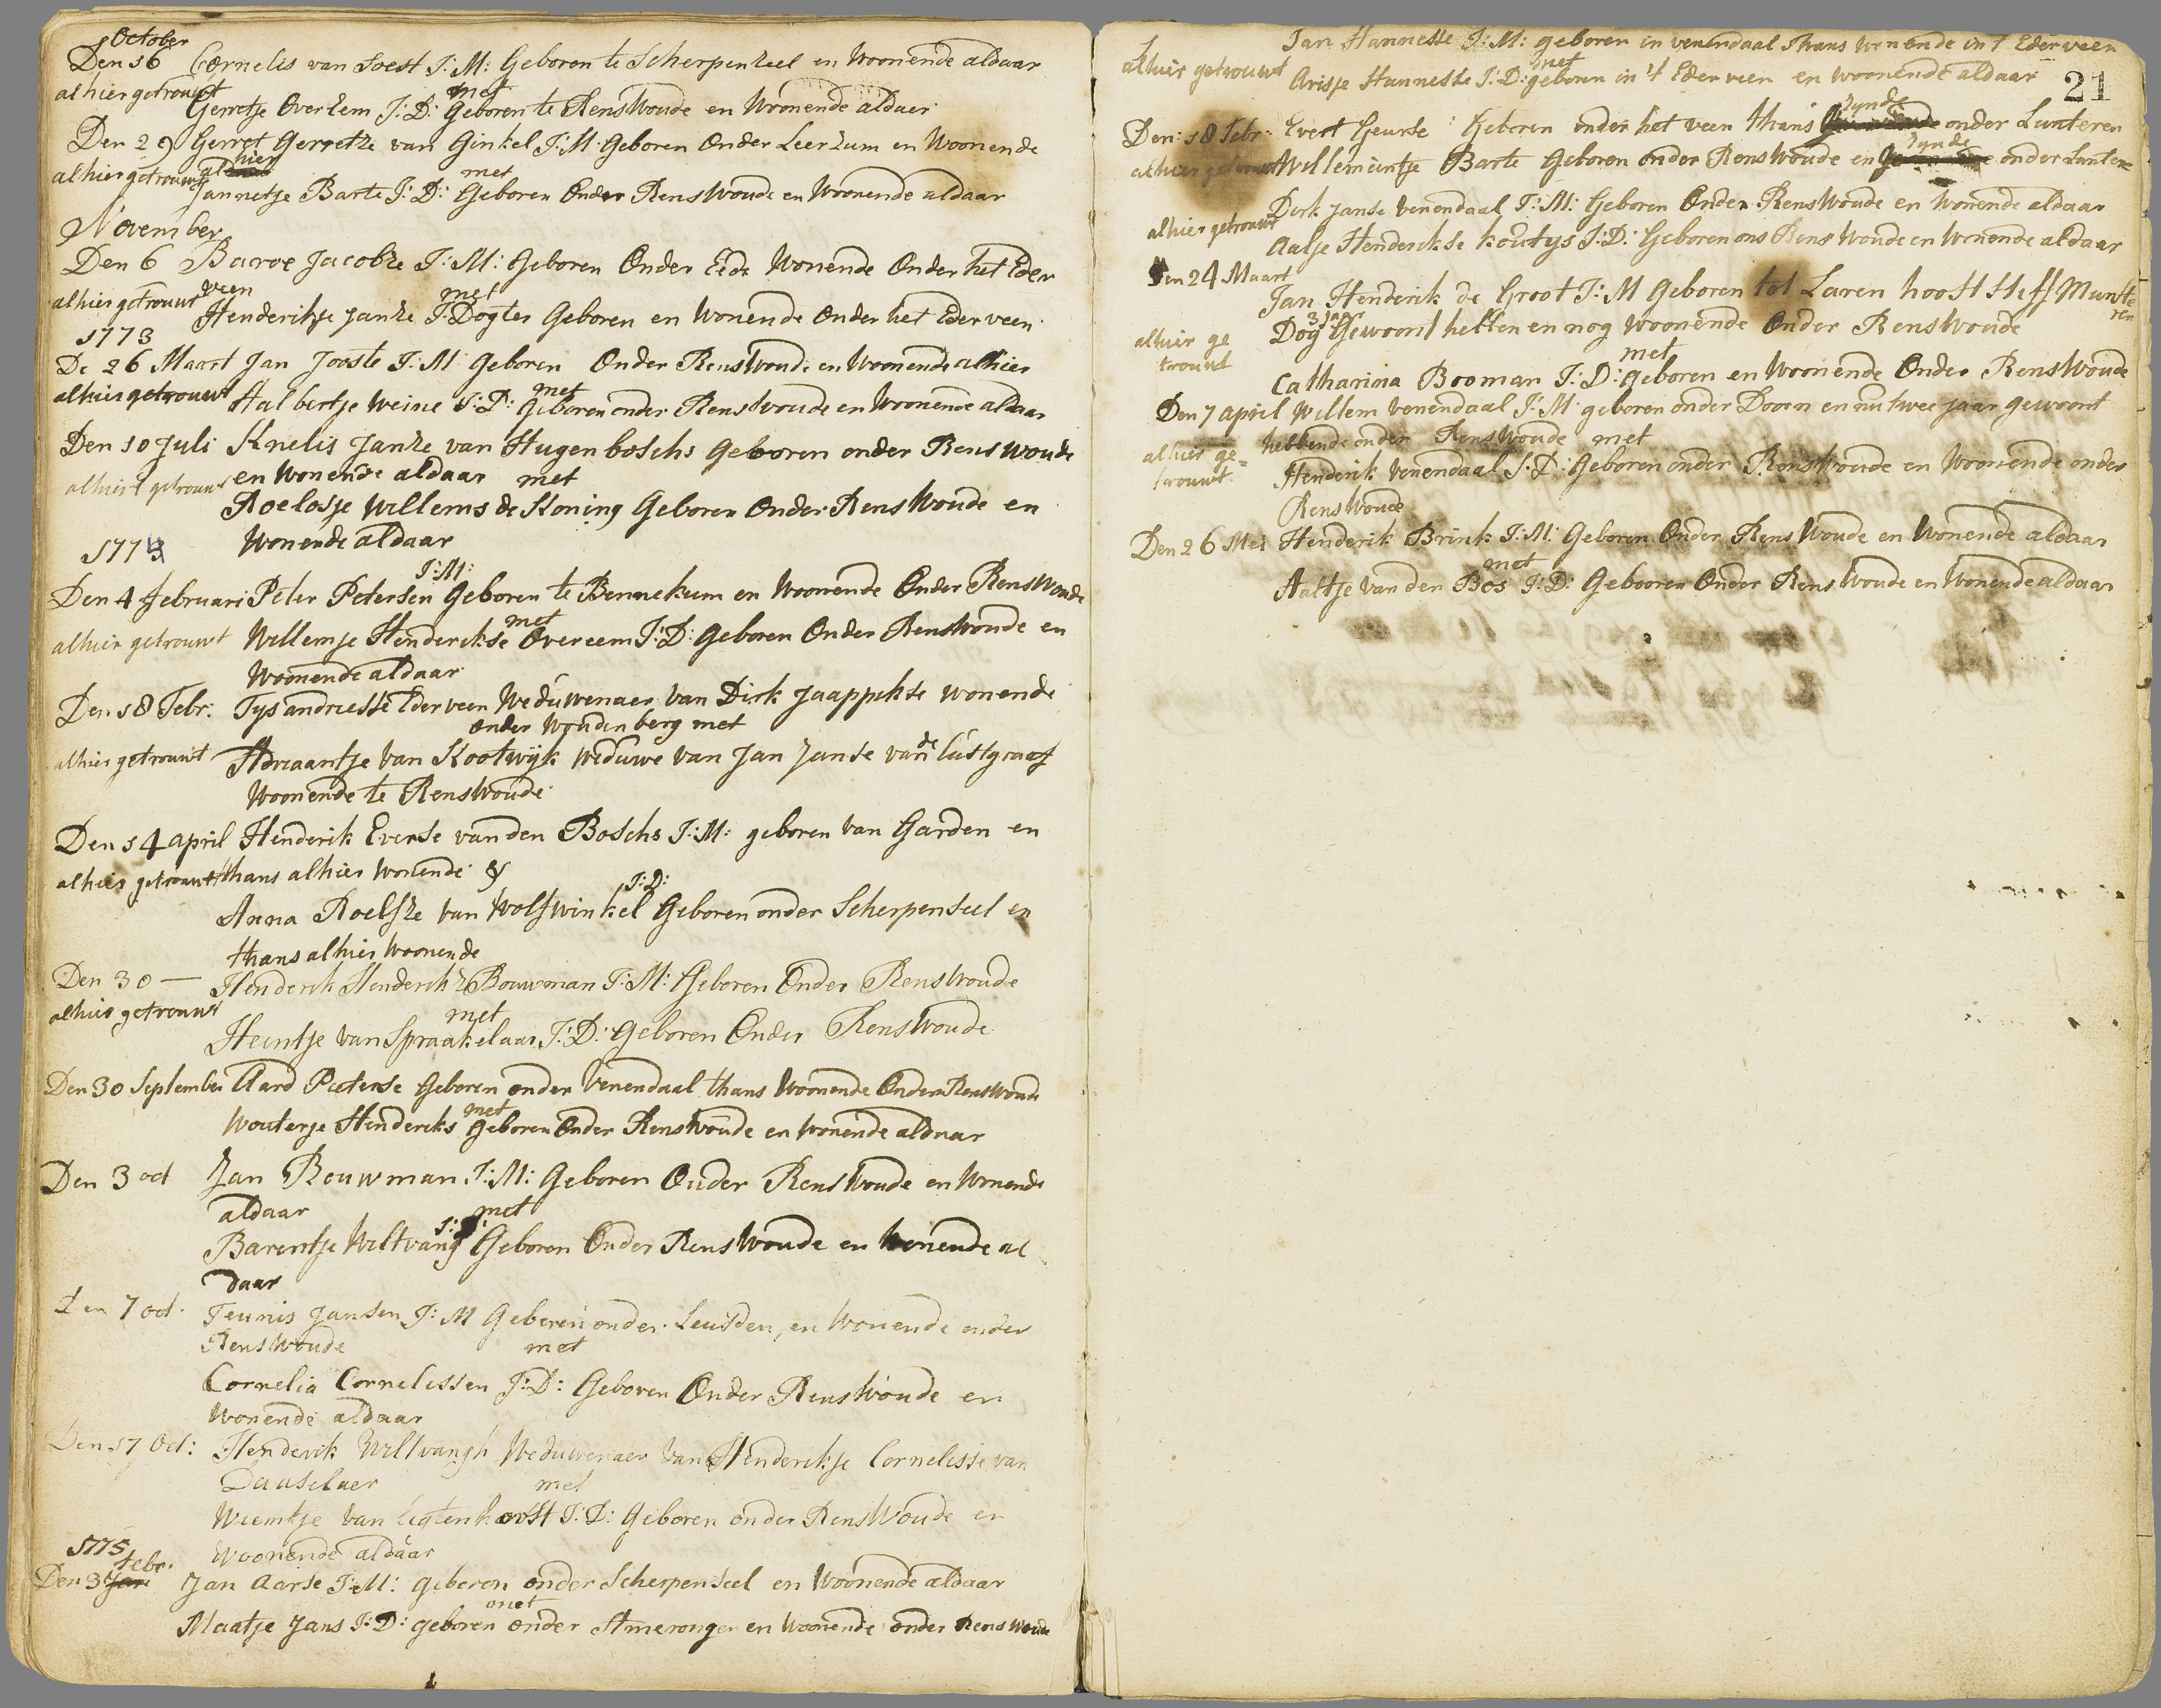 October
Den 16 Cornelis van Soest J: M: Geboren te Scherpenzeel en Woonende aldaar
alhier getrouwt met
Gerretje Overhem J: D: Geboren te Renswoude en Woonende aldaer
Den 29 Gerret Gerretze van Ginkel J: M: Geboren Onder Leerzum en Woonende
alhier getrouwt alhier met
Jannetje Barte J: D: Geboren Onder Renswoude en Woonende aldaar
November
Den 6 Jacobze J: M: Geboren Onder Eede Wonende Onder het Eder
alhier getrouwt veen met
Henderikje Janze J: Dogter Geboren en Wonende Onder het Ederveen
1773
De 26 Maart Jan Jooste J: M: Geboren Onder Renswoude en Woonende alhier
alhier getrouwt met
Halbertje Weine J: D: Geboren onder Renswoude en Woonende aldaar
Den 10 Juli Knelis Janze van Hugenboschs Geboren onder Renswoude
alhier getrouwt en Wonende aldaar met
Roelofje Willems de Koning Geboren Onder Renswoude en
Wonende aldaar
J: M:
Den 4 Februari Peter Petersen Geboren te Bennekum en Woonende Onder Renswoude
met
alhier getrouwt Willemje Henderikse Overeem J: D: Geboren Onder Renswoude en
Woonende aldaar
Den 18 Febr: Tys andriesse Ederveen Weduwenaer van Dirk Jaappikse wonende
onder Woudenberg met
alhier getrouwt Adriaantje van Kootwijk Weduwe van Jan Janse van de Lustgraaf
Woonende te Renswoude
Den 14 april Henderik Everse van den Boschs J: M: geboren van Garden en
alhier getrouwt thans alhier Wonende &
J: D:
Anna Roelfze van Wolfswinkel Geboren onder Scherpenseel en
thans alhier Woonende
Den 30 — Henderik Henderikz Bouwman J: M: Geboren Onder Renswoude
alhier getrouwt met
Heintje van Spraakelaar J: D: Geboren Onder Renswoude
Den 30 September Aard Peeterse Geboren onder Venendaal thans Woonende Onder Renswoude
met
Wouterje Henderiks Geboren Onder Renswoude en Wonende aldaar
Den 3 oct Jan Bouwman J: M: Geboren Onder Renswoude en Wonende
aldaar met
J: D:
Barentje Weltvang Geboren Onder Renswoude en Wonende al
daar
Den 7 oct. Teunis Jansen J: M Geboren onder Leusden, en Wonende onder
Renswoude met
Cornelia Cornelissen J: D: Geboren Onder Renswoude en
Wonende aldaar
Den 17 Oct: Henderik Weltvangh Weduwenaer van Henderikje Cornelisse van
Daaselaer met
Weemtje van Ligtenhorst J: D: Geboren onder Renswoude en
Woonende aldaar
1775
Febr.
Den 3 Jan: Jan Aarse J: M: geboren onder Scherpenseel en Woonende aldaar
met
Maatje Jans J: D: geboren onder Ameronge en Woonende onder Renswoude
Jan Hannesse J: M: geboren in venendaal Thans Wonende in 't Ederveen
alhier getrouwt met
Arisje Hannesse J: D: geboren in 't Ederveen en woonende aldaar
21
zynde
Den: 18 Febr: Evert Geurse Geboren onder het veen thans onder Lunteren
zynde
alhier getrouwt Willemeintje Barte Geboren onder Renswoude en onder Lunteren
Derk Janse Venendaal J: M: Geboren Onder Renswoude en Wonende aldaar
alhier getrouwt
Aalje Henderikse Koutys J: D: Geboren ons Renswoude en Wonende aldaar
Den 24 Maart
Jan Henderik de Groot J: M Geboren tot Laren hooft Steff Munste
ren
3 jaar
Dog Gewoont hebben en nog Woonende Onder Renswoude
alhier ge
trouwt met
Catharina Booman J: D: geboren en Woonende Onder Renswoude
Den 7 april Willem Venendaal J: M: geboren onder Doorn en nu twee jaar gewoont
alhier ge= hebbende onder Renswoude met
trouwt. Henderik Venendaal J: D: Geboren onder Renswoude en Woonende onder
Renswoude
Den 26 Mei Henderik Brink J: M: Geboren Onder Renswoude en Wonende aldaar
met
Aaltje van den Bos J: D: Gebooren Onder Renswoude en Wonende aldaar